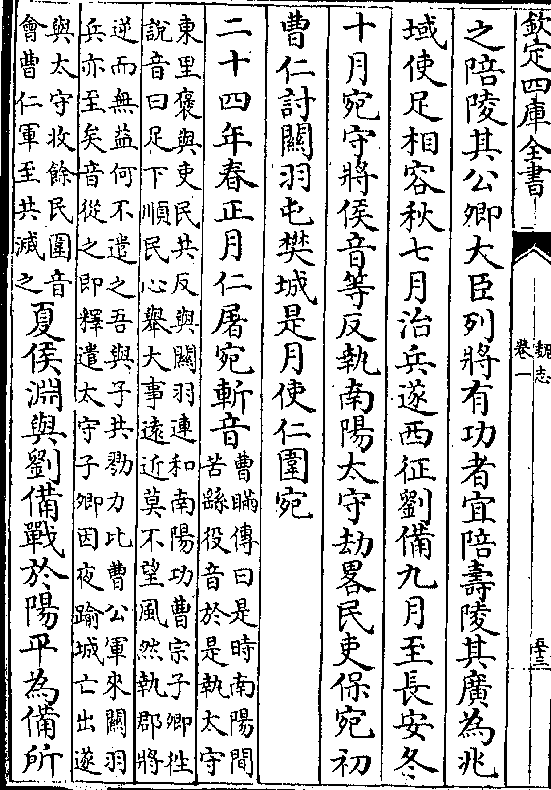 欽定四庫全書
魏志
卷一
至三
之陪陵其公卿大臣列將有功者宜陪壽陵其廣為兆
域使足相容秋七月治兵遂西征劉備九月至長安冬
十月宛守將侯音等反執南陽太守劫畧民吏保宛初
曹仁討關羽屯樊城是月使仁圍宛
二十四年春正月仁屠宛斬音
曹瞞傳曰是時南陽間
苦繇役音於是執太守
東里褒與吏民共反與關羽連和南陽功曹宗子卿徃
說音曰足下順民心舉大事遠近莫不望風然執郡將
逆而無益何不遣之吾與子共勠力比曹公軍來關羽
兵亦至矣音從之即釋遣太守子卿因夜踰城亡出遂
與太守收餘民圍音
會曹仁軍至共滅之
夏侯淵與劉備戰於陽平為備所